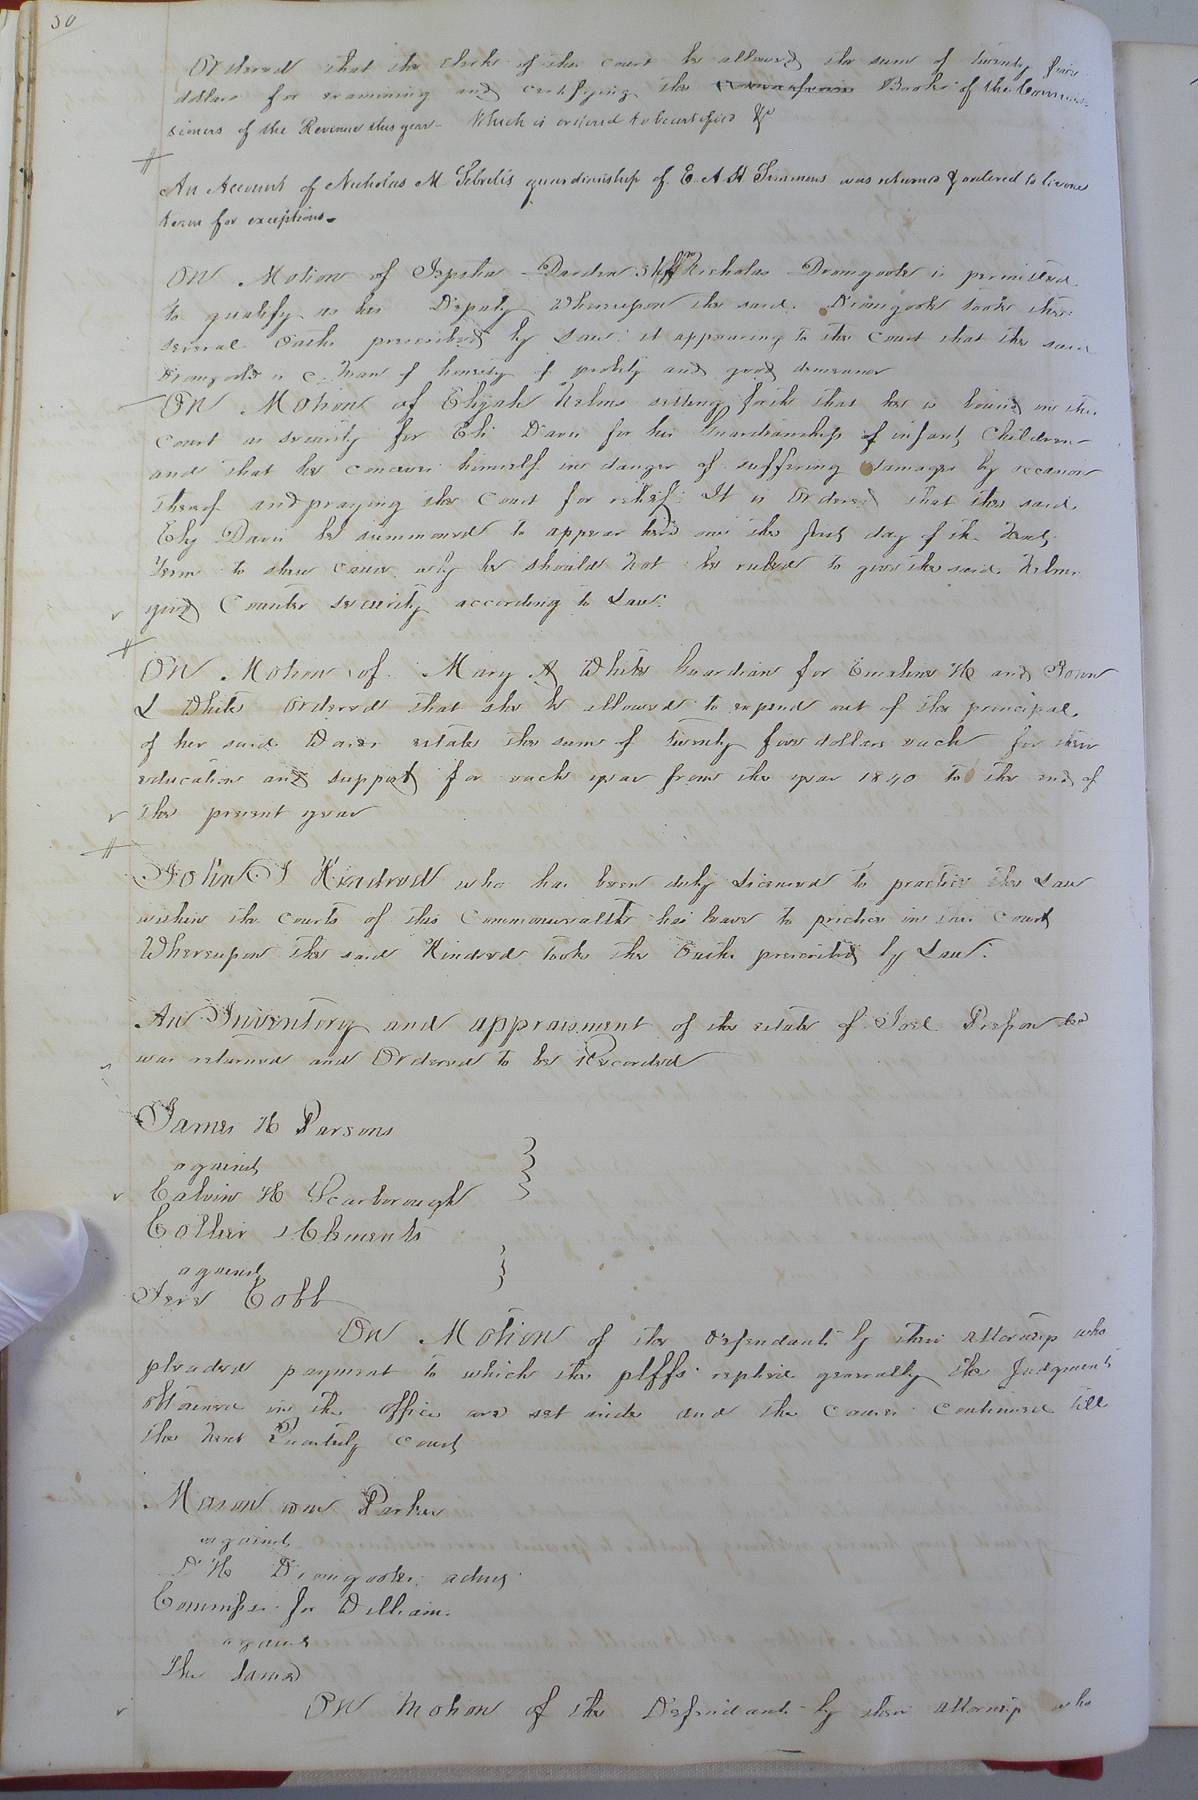 30
Ordered that the clerk of this court be allowed the sum of twenty five
dollars for examining and certifying the Books of the Commis
sioners of the Revenue this year - Which is ordered to be certified &c
An Account of Nicholas M Sebrells guardianship of E. A H Simmons was returned & ordered to lie one
term for exceptions.
On Motion of Jepsha Darden Shff Nicholas Dromgoole is permitted
to qualify as his Deputy Whereupon the said Dromgoole took the
several Oaths prescribed by Law it appearing to the Court that the said
Dromgoole is a Man of honesty of probity and good demeanor
On Motion of Elijah Helms setting forth that he is bound in this
Court as security for Eli Davis for his Guardianship of infant Children
and that he conceives himself in danger of suffering damage by occasion
thereof and praying the Court for relief: It is Ordered that the said
Ely Davis be summoned to appear here on the first day of the Next
Term to shew cause why he should Not be ruled to give the said Helms
good Counter security according to Law.
On Motion of Mary A White Guardian for Emeline H and John
L White Ordered that she be allowed to expend out of the principal
of her said Wards estate the sum of twenty five dollars each for their
education and support for each year from the year 1840 to the end of
the present year
John J Kindred who has been duly Licensed to practice the Law
within the Courts of this Commonwealth has leave to practice in this Court
Whereupon the said Kindred took the Oaths prescribed by Law.
An Inventory and appraisment of the estate of Joel decd
was returned and Ordered to be Recorded
James H Parsons
against
Calvin H Scarborough
Collier & Clements
against
Jere Cobb
On Motion of the Defendants by their attorney who
pleaded payment to which the plffs replied generally the Judgments
obtained in the office are set aside and the Causes Continued till
the Next Quarterly Court
Mason Parker
against
D H Dromgoole admr
for William
against
The Same
On Motion of the Defendants by their attorney who